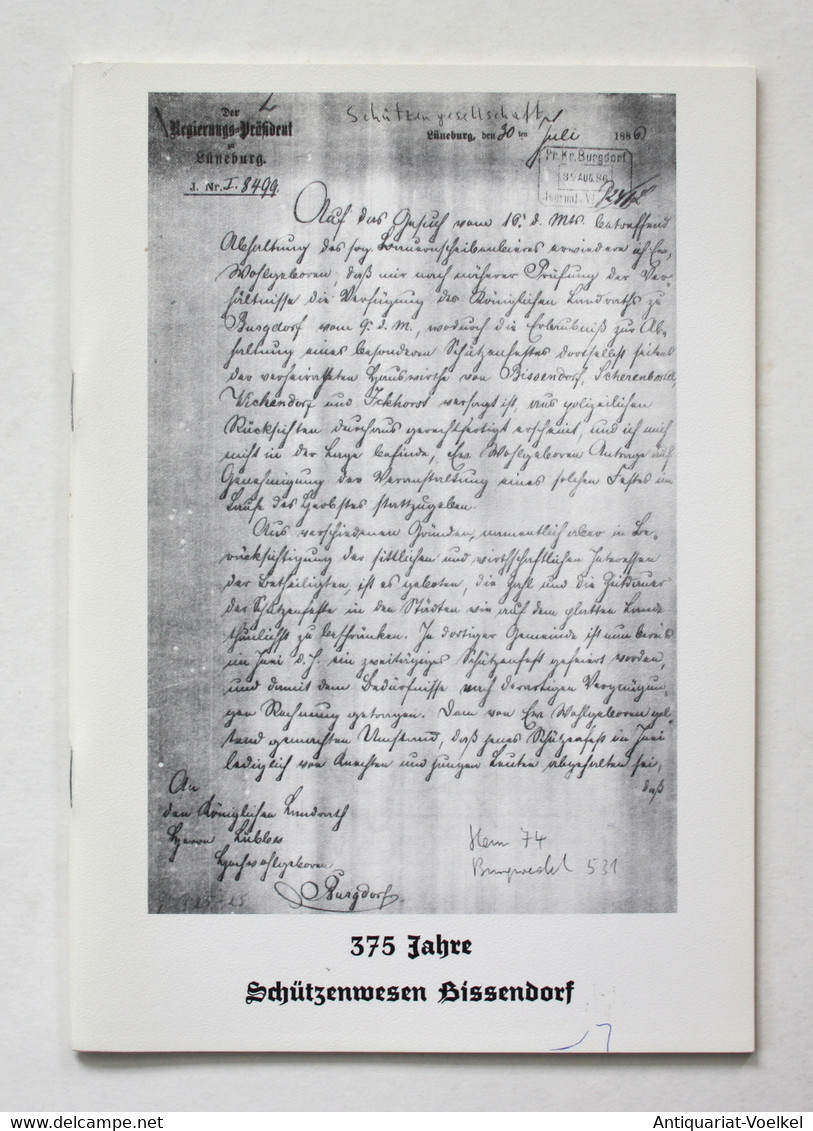 Der
Regierungs-Präsident
zu
Lüneburg.
J. Nr. I. 8499.
Schützengesellschaft
Lüneburg, den 30 ten Juli 1886
Pr. Kr. Burgdorf
AUG. 86
Journal
Auf das Gesuch vom 16. d. Mts. betreffend
Abhaltung des sog. Bauernscheibenbieres erwiedere ich Ew.
Wohlgeboren, daß mir nach näherer Prüfung der Ver-
hältnisse die Verfügung des Königlichen Landraths zu
Burgdorf vom 9. d. M., wodurch die Erlaubniß zur Ab-
haltung eines besonderen Schützenfestes dortselbst seitens
der verheiratheten Hauswirthe von Bissendorf, Scherenbostel,
Wichendorf und Ickhorst versagt ist, aus polizeilichen
Rücksichten durchaus gerechtfertigt erscheint, und ich mich
nicht in der Lage befinde, Ew. Wohlgeboren Antrage auf
Genehmigung der Veranstaltung eines solchen Festes im
Laufe des Herbstes stattzugeben.
Aus verschiedenen Gründen, namentlich aber in Be-
rücksichtigung der sittlichen und wirthschaftlichen Interessen
der Betheiligten, ist es geboten, die Zahl und die Zeitdauer
der Schützenfeste in den Städten wie auf dem platten Lande
thunlichst zu beschränken. In dortiger Gemeinde ist nun bereits
im Juni d. J. ein zweitägiges Schützenfest gefeiert worden,
und damit dem Bedürfnisse nach derartigen Vergnügun-
gen Rechnung getragen. Dem von Ew. Wohlgeboren gel-
tend gemachten Umstand, daß jenes Schützenfest im Juni
lediglich von Knechten und jungen Leuten abgehalten sei,
daß
An
den Königlichen Landrath
Herrn
Hochwohlgeboren
Burgdorf.
Hann 74
Burgwedel 531
375 Jahre
Schützenwesen Bissendorf
Antiquariat-Voelkel